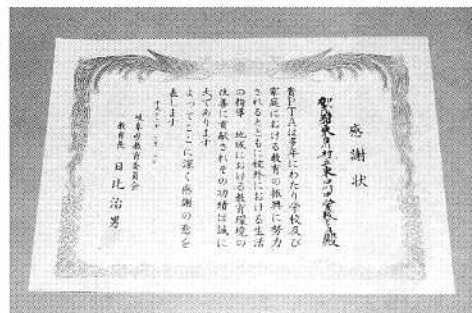 感謝状
貴PTAは多年にわたり学校及び
家庭における教育の振興に努力
されるとともに校外における生活
の指導 地域における教育環境の
改善に貢献されその功績は誠に
大であります
よってここに深く感謝の意を
表します
岐阜県教育委員会
教育長 日比治男